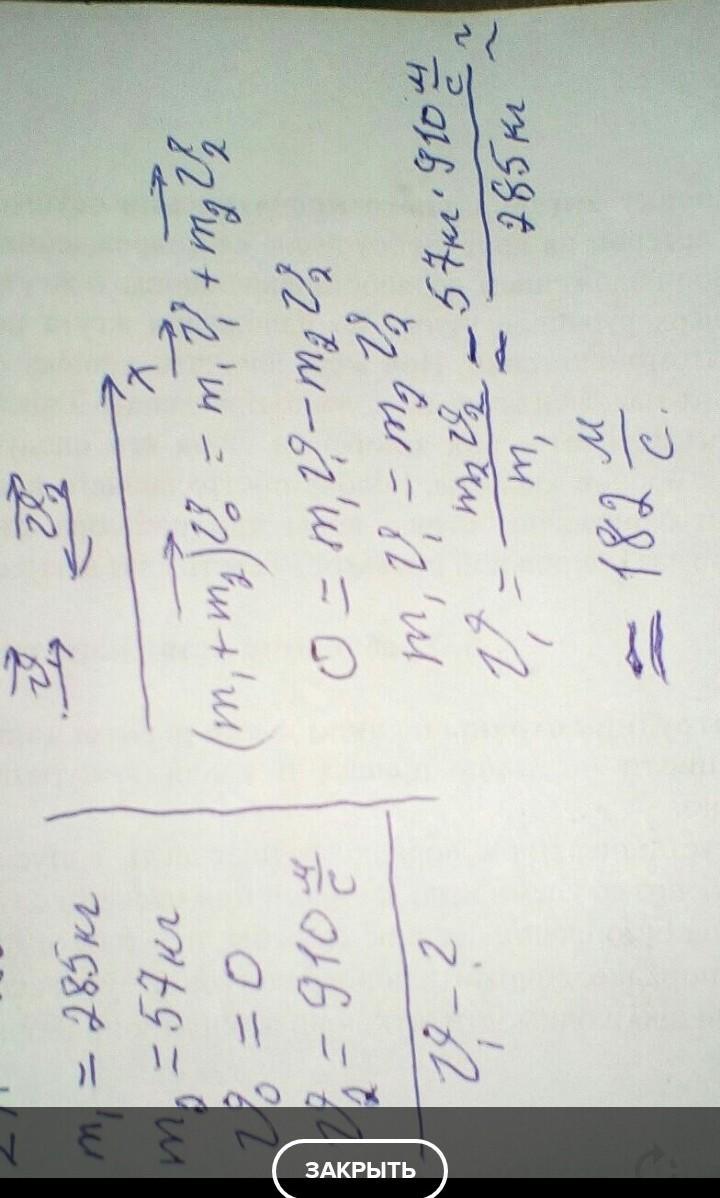 m₁ = 285кг
m₂ = 57кг
υ₀ = 0
υ₂ = 910 м/с
υ₁ - ?
υ⃗ υ⃗₂
x
(m₁ + m₂)υ⃗₀ = m₁υ⃗ + m₂υ⃗₂
0 = m₁υ₁ - m₂υ₂
m₁υ₁ = m₂υ₂
υ₁ = m₂υ₂/m₁ = 57кг·910 м/с / 285кг ~
= 182 м/с.
ЗАКРЫТЬ